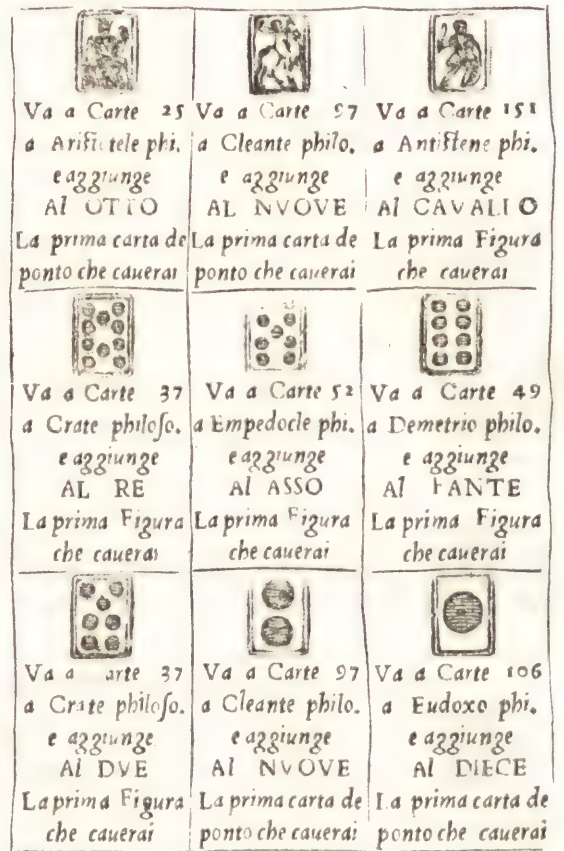 Va a Carte 25
a Aristotele phi.
e aggiunge
Al OTTO
La prima carta de
ponto che cauerai
Va a Carte 97
a Cleante philo.
e aggiunge
AL NVOVE
La prima carta de
ponto che cauerai
Va a Carte 151
a Antistene phi.
e aggiunge
Al CAVALLO
La prima Figura
che cauerai
Va a Carte 37
a Crate philoso.
e aggiunge
AL RE
La prima Figura
che cauerai
Va a Carte 52
a Empedocle phi.
e aggiunge
Al ASSO
La prima Figura
che cauerai
Va a Carte 49
a Demetrio philo.
e aggiunge
Al FANTE
La prima Figura
che cauerai
Va a Carte 37
a Crate philoso.
e aggiunge
Al DVE
La prima Figura
che cauerai
Va a Carte 97
a Cleante philo.
e aggiunge
Al NVOVE
La prima carta de
ponto che cauerai
Va a Carte 106
a Eudoxo phi.
e aggiunge
Al DIECE
La prima carta de
ponto che cauerai